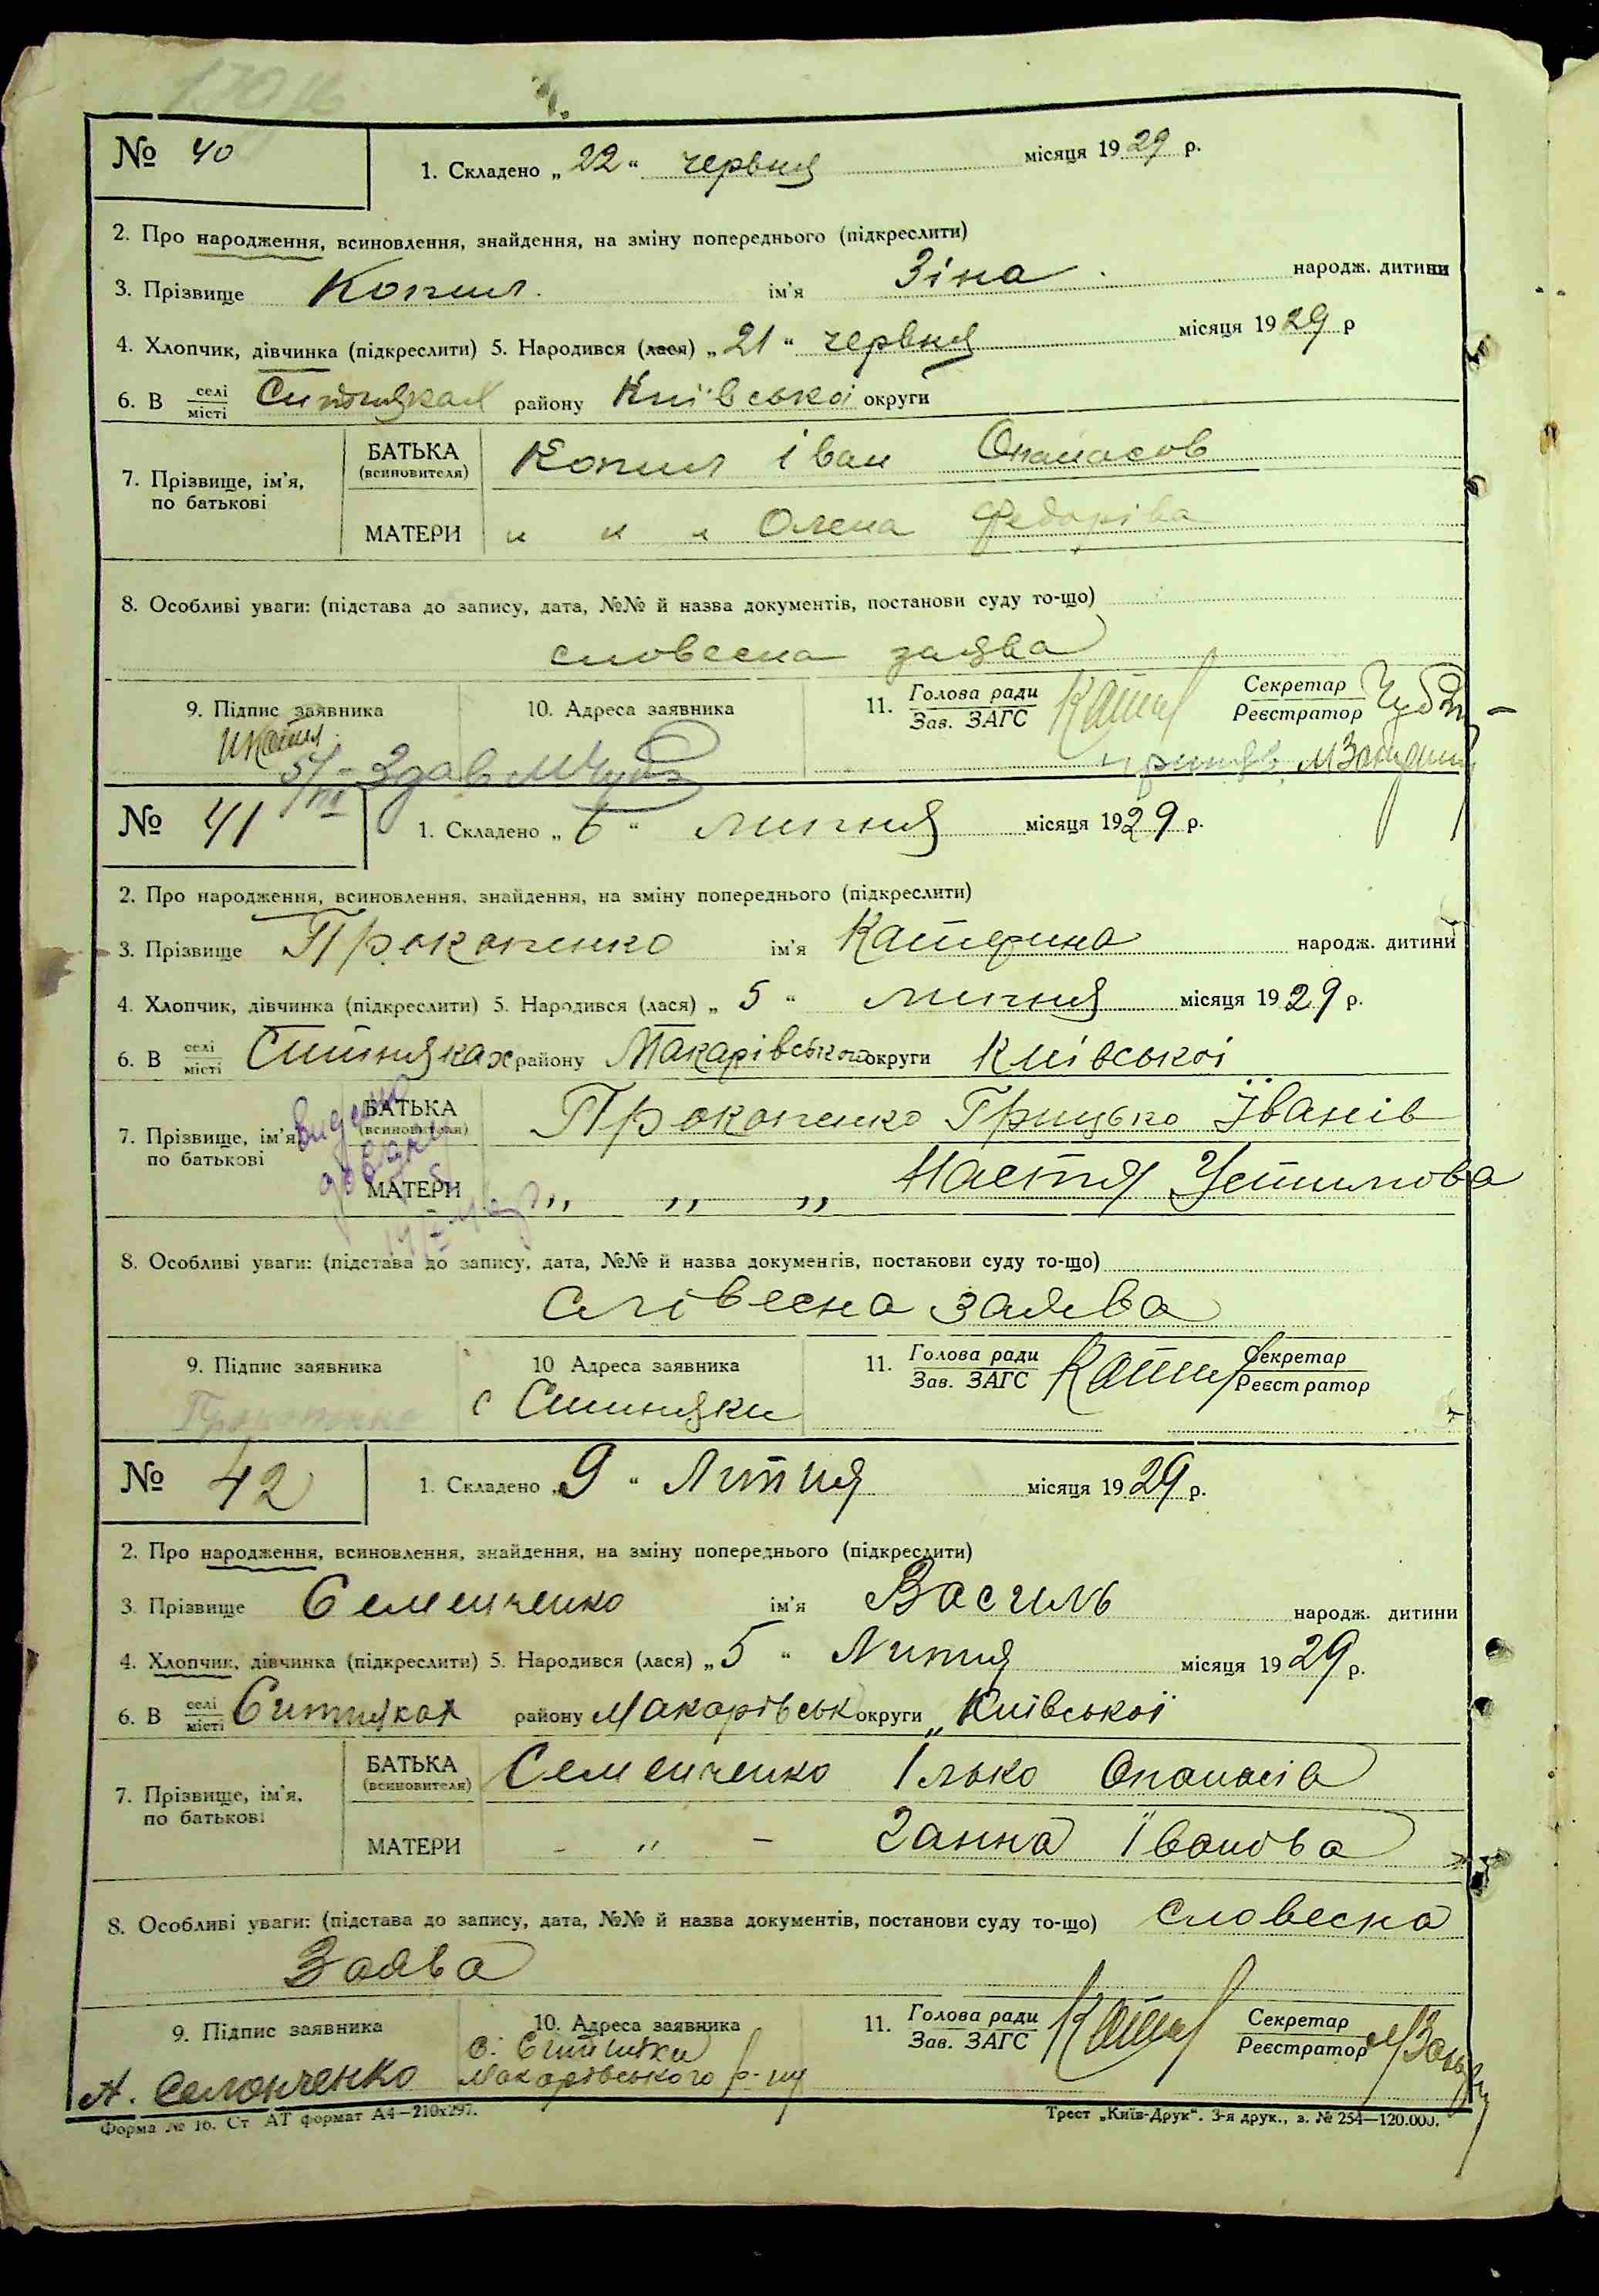 № 40
1. Складено „22“ червня місяця 1929 р.
2. Про народження, всиновлення, знайдення, на зміну попереднього (підкреслити)
3. Прізвище Копил ім'я Зіна народж. дитини
4. Хлопчик, дівчинка (підкреслити) 5. Народився (лася) „21“ червня місяця 1929 р
6. В селі місті Ситняках району Київської округи
7. Прізвище, ім'я, по батькові
БАТЬКА (всиновителя) Копил Іван Опанасов
МАТЕРИ " " " Олена Федорівна
8. Особливі уваги: (підстава до запису, дата, №№ й назва документів, постанови суду то-що)
словесна заява
9. Підпис заявника
10. Адреса заявника
11. Голова ради Зав. ЗАГС Секретар Реєстратор
Здав
№ 41
1. Складено „6“ липня місяця 1929 р.
2. Про народження, всиновлення, знайдення, на зміну попереднього (підкреслити)
3. Прізвище Прокопенко ім'я Катерина народж. дитини
4. Хлопчик, дівчинка (підкреслити) 5. Народився (лася) „5“ липня місяця 1929 р.
6. В селі місті Ситняках району Макарівського округи Київської
7. Прізвище, ім'я по батькові
БАТЬКА (всиновителя) Прокопенко Грицько Їванів
МАТЕРИ ,, ,, ,, Настя Устимова
8. Особливі уваги: (підстава до запису, дата, №№ й назва документів, постанови суду то-що)
слівесна заява
9. Підпис заявника
10 Адреса заявника
11. Голова ради Зав. ЗАГС Секретар Реєстратор
Прокопенко
с Ситняки
№ 42
1. Складено „9“ Липня місяця 1929 р.
2. Про народження, всиновлення, знайдення, на зміну попереднього (підкреслити)
3. Прізвище Семенченко ім'я Василь народж. дитини
4. Хлопчик, дівчинка (підкреслити) 5. Народився (лася) „5“ Липня місяця 1929 р.
6. В селі місті Ситняках району Макарівськ округи „Київської
7. Прізвище, ім'я, по батькові
БАТЬКА (всиновителя) Семенченко Ілько Опанасів
МАТЕРИ - " - Ганна Їванова
8. Особливі уваги: (підстава до запису, дата, №№ й назва документів, постанови суду то-що) словесна
Заява
9. Підпис заявника
10. Адреса заявника
11. Голова ради Зав. ЗАГС Секретар Реєстратор
с. Ситняки
Макарівського р-ну
Форма № 16. Ст АТ формат А4—210х297.
Трест „Київ-Друк“. 3-я друк., з. № 254—120.000.